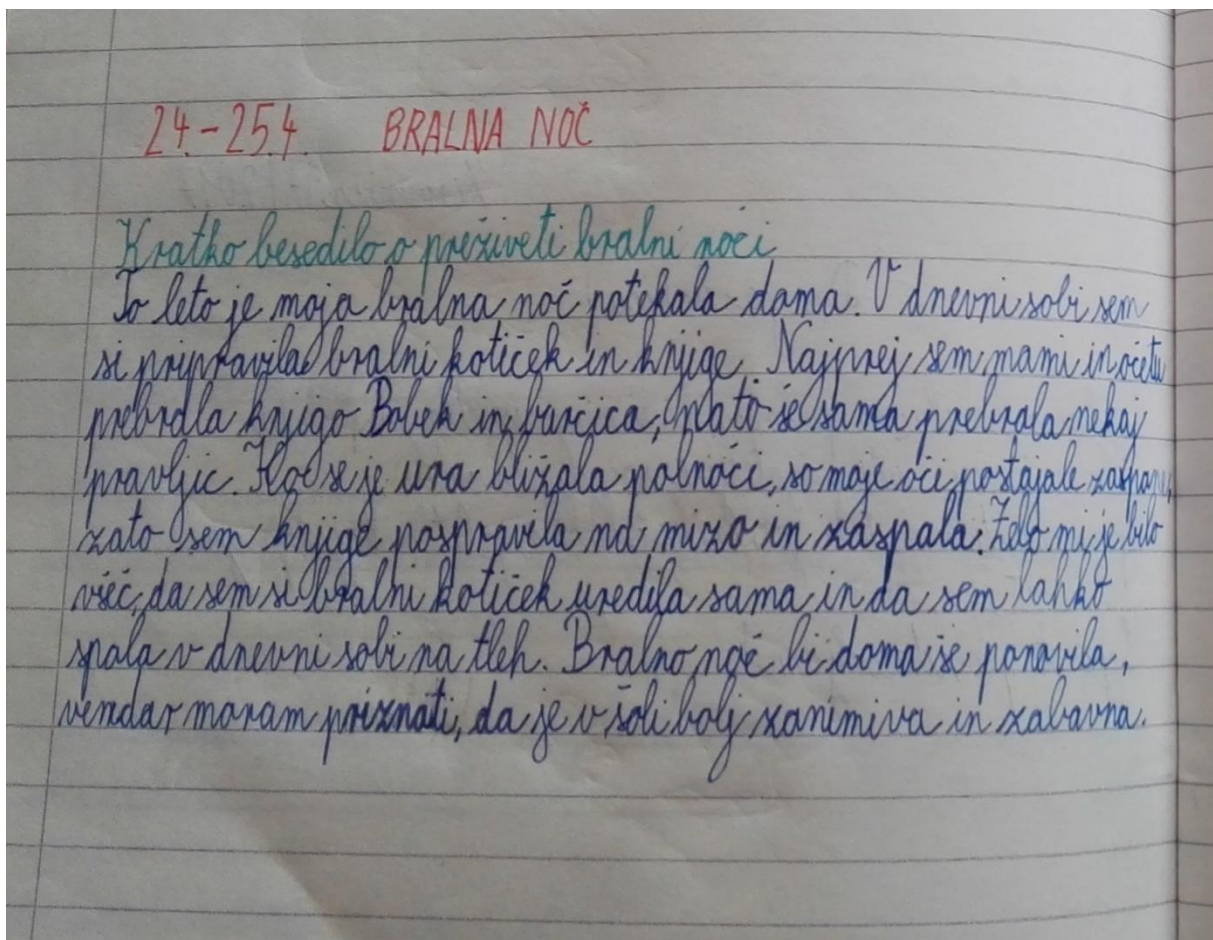 24.-25.4. BRALNA NOČ
Kratko besedilo o preživeti bralni noči
To leto je moja bralna noč potekala doma. V dnevni sobi sem
si pripravila bralni kotiček in knjige. Najprej sem mami in očetu
prebrala knjigo Bobek in barčica, nato še sama prebrala nekaj
pravljic. Ko se je ura bližala polnoči, so moje oči postajale zaspane,
zato sem knjige pospravila na mizo in zaspala. Zelo mi je bilo
všeč, da sem si bralni kotiček uredila sama in da sem lahko
spala v dnevni sobi na tleh. Bralno noč bi doma še ponovila,
vendar moram priznati, da je v šoli bolj zanimiva in zabavna.